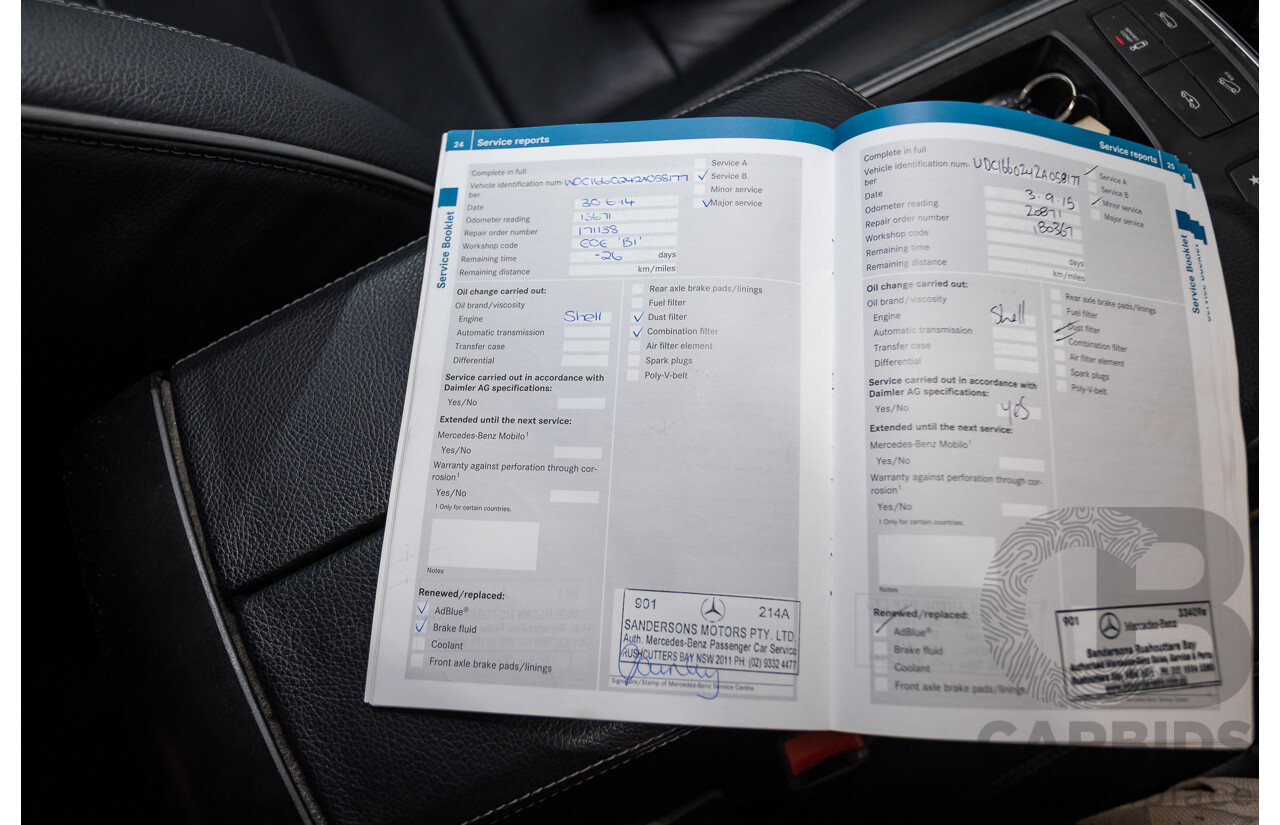 24 Service reports
Service Booklet
Complete in full
Vehicle identification num- WDC1660242A058177
ber
Date 30 6.14
Odometer reading 15671
Repair order number 171138
Workshop code EOE 'B1'
Remaining time -26 days
Remaining distance km/miles
Service A
Service B
Minor service
Major service
Oil change carried out:
Oil brand/viscosity
Engine Shell
Automatic transmission
Transfer case
Differential
Service carried out in accordance with
Daimler AG specifications:
Yes/No
Extended until the next service:
Mercedes-Benz Mobilo¹
Yes/No
Warranty against perforation through cor-
rosion¹
Yes/No
¹ Only for certain countries.
Notes
Rear axle brake pads/linings
Fuel filter
Dust filter
Combination filter
Air filter element
Spark plugs
Poly-V-belt
Renewed/replaced:
AdBlue®
Brake fluid
Coolant
Front axle brake pads/linings
901 214A
SANDERSONS MOTORS PTY. LTD.
Auth. Mercedes-Benz Passenger Car Service
RUSHCUTTERS BAY NSW 2011 PH: (02) 9332 4477
Signature/Stamp of Mercedes-Benz Service Centre
Service reports 25
Service Booklet
Complete in full
Vehicle identification num- WDC1660242A058177
ber
Date 3.9.15
Odometer reading 20871
Repair order number 180367
Workshop code
Remaining time days
Remaining distance km/miles
Service A
Service B
Minor service
Major service
Oil change carried out:
Oil brand/viscosity
Engine Shell
Automatic transmission
Transfer case
Differential
Service carried out in accordance with
Daimler AG specifications:
Yes/No yes
Extended until the next service:
Mercedes-Benz Mobilo¹
Yes/No
Warranty against perforation through cor-
rosion¹
Yes/No
¹ Only for certain countries.
Notes
Rear axle brake pads/linings
Fuel filter
Dust filter
Combination filter
Air filter element
Spark plugs
Poly-V-belt
Renewed/replaced:
AdBlue®
Brake fluid
Coolant
Front axle brake pads/linings
901 Mercedes-Benz 33409a
Sandersons Rushcutters Bay
Authorised Mercedes-Benz Sales, Service & Parts
CB
CARBIDS